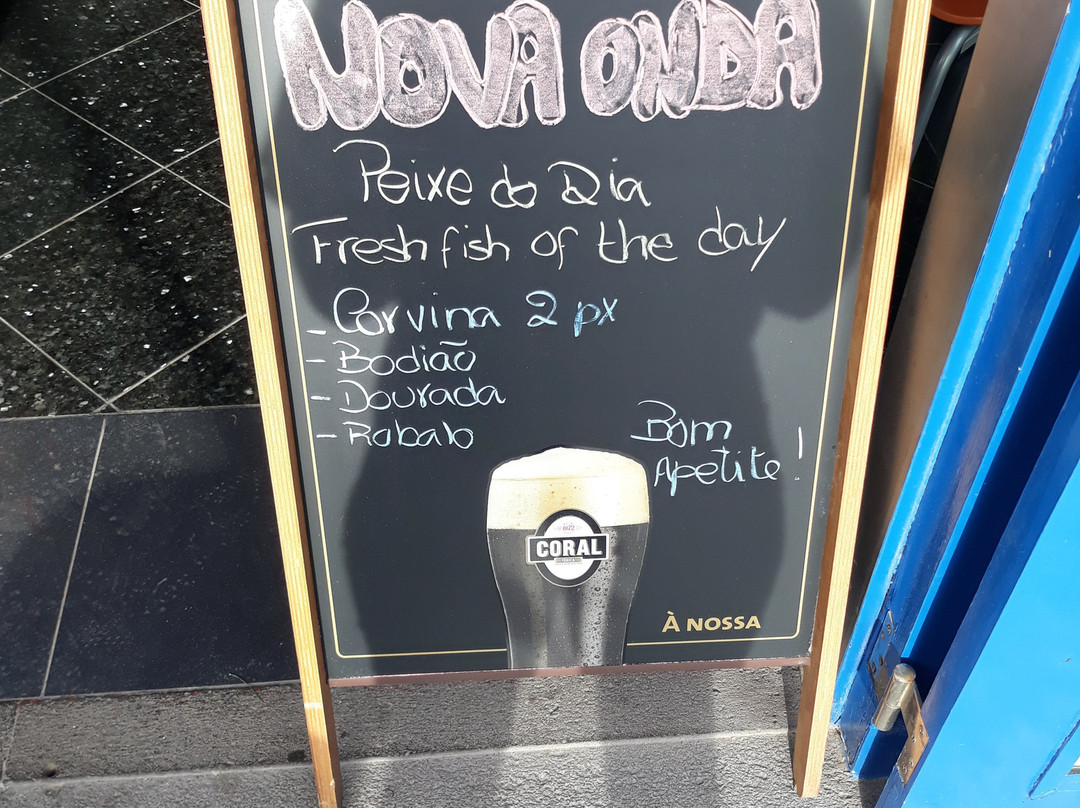 NOVA ONDA
Peixe do Dia
Fresh fish of the day
- Corvina 2 px
- Bodião
- Dourada
- Robalo
Bom
Apetite!
CORAL
À NOSSA